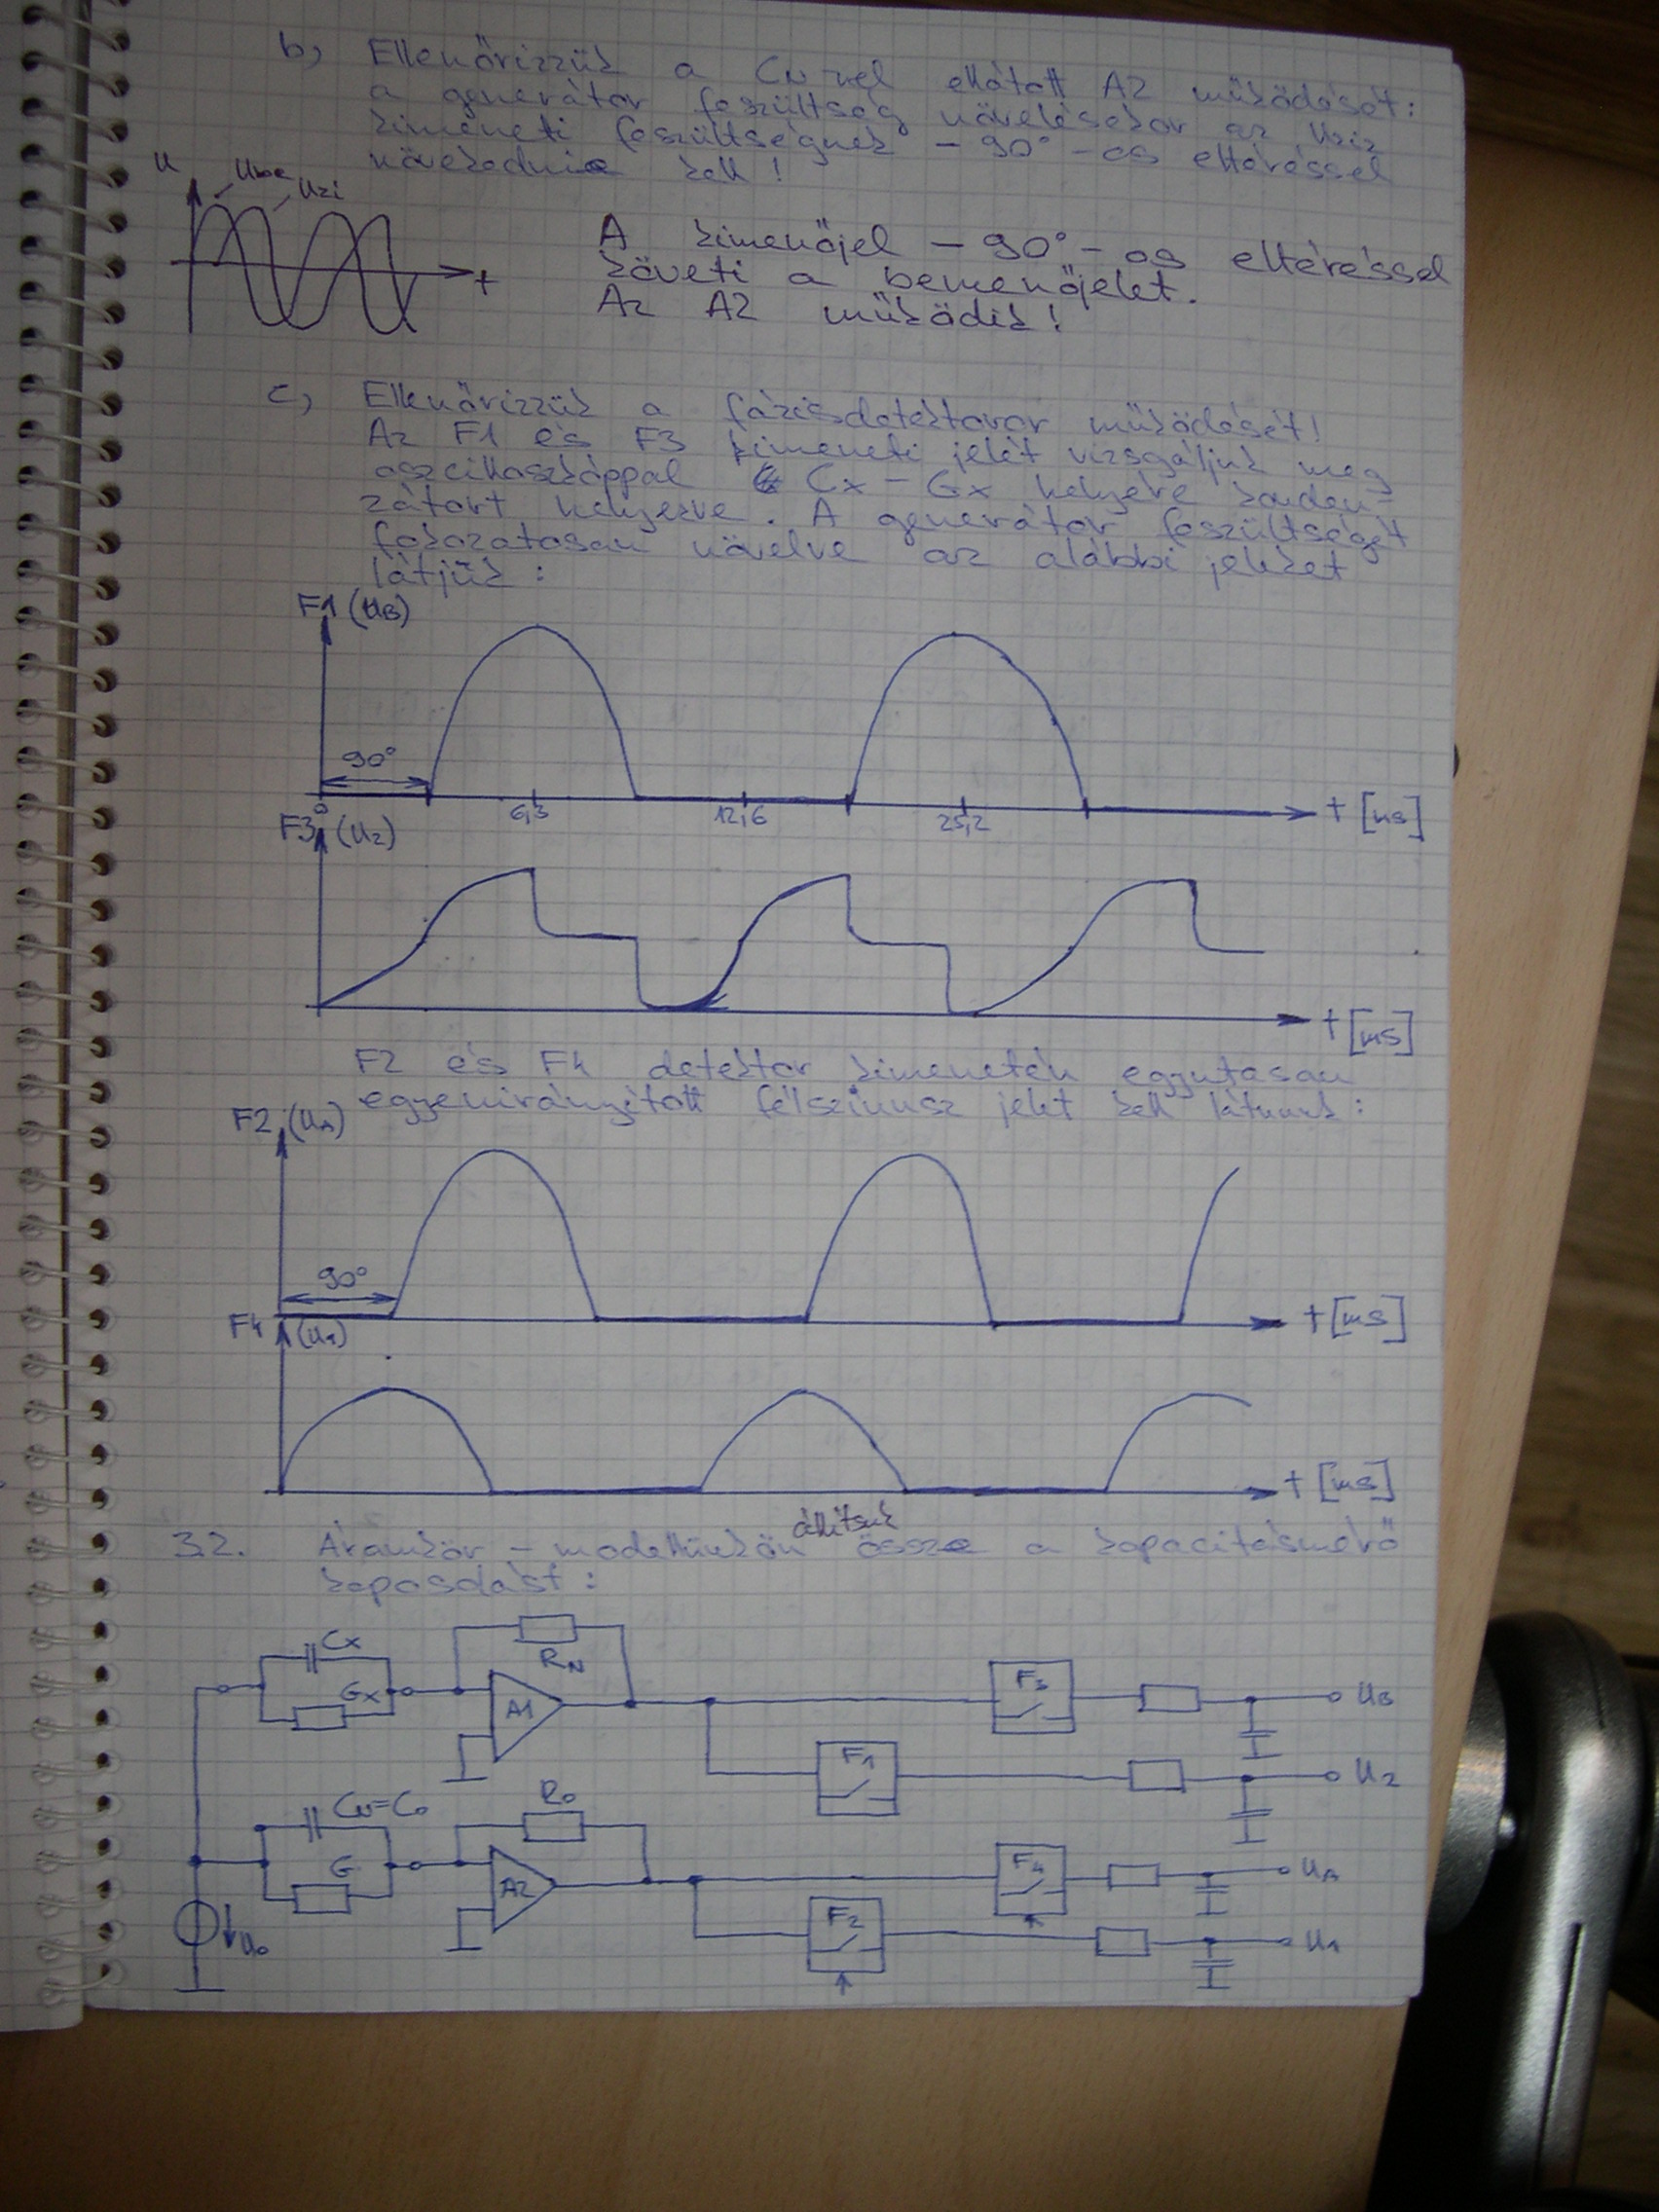 b, Ellenőrizzük a CN-nel ellátott A2 működését:
a generátor feszültség növelésekor az Uki2
kimeneti feszültségnek -90°-os eltéréssel
növekednie kell!
U
Ube
Uki
t
A kimenőjel -90°-os eltéréssel
követi a bemenőjelet.
Az A2 működik!
c, Ellenőrizzük a fázisdetektorok működését!
Az F1 és F3 kimeneti jelét vizsgáljuk meg
oszcilloszkóppal Cx - Gx helyére konden-
zátort helyezve. A generátor feszültségét
fokozatosan növelve az alábbi jeleket
látjuk:
F1 (UB)
90°
0 6,3 12,6 25,2 t [ms]
F3 (U2)
t [ms]
F2 és F4 detektor kimenetén egyutasan
egyenirányított félszinusz jelet kell látnunk:
F2 (UA)
90°
t [ms]
F4 (U1)
t [ms]
3.2. Áramkör - modellünkön állítsuk össze a kapacitásmérő
kapcsolást:
Cx
RN
Gx
A1
F3
UB
F1
U2
CN=C0
R0
G
A2
F4
UA
F2
U1
U0